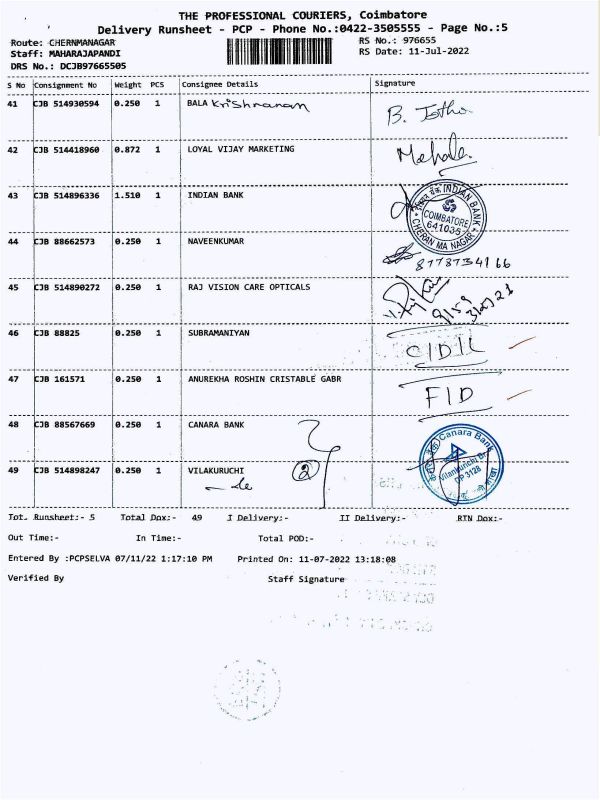 THE PROFESSIONAL COURIERS, Coimbatore
Delivery Runsheet - PCP - Phone No.:0422-3505555 - Page No.:5
Route: CHERNMANAGAR RS No.: 976655
Staff: MAHARAJAPANDI RS Date: 11-Jul-2022
DRS No.: DCJB97665505
S No Consignment No Weight PCS Consignee Details Signature
41 CJB 514930594 0.250 1 BALA Krishnanam B.
42 CJB 514418960 0.872 1 LOYAL VIJAY MARKETING
43 CJB 514896336 1.510 1 INDIAN BANK
INDIAN BANK
COIMBATORE
641035
CHERAN MA NAGAR
44 CJB 88662573 0.250 1 NAVEENKUMAR
8778734166
45 CJB 514890272 0.250 1 RAJ VISION CARE OPTICALS
46 CJB 88825 0.250 1 SUBRAMANIYAN
47 CJB 161571 0.250 1 ANUREKHA ROSHIN CRISTABLE GABR
48 CJB 88567669 0.250 1 CANARA BANK
Canara Bank
DP 3128
49 CJB 514898247 0.250 1 VILAKURUCHI 2
Tot. Runsheet:- 5 Total Dox:- 49 I Delivery:- II Delivery:- RTN Dox:-
Out Time:- In Time:- Total POD:-
Entered By :PCPSELVA 07/11/22 1:17:10 PM Printed On: 11-07-2022 13:18:08
Verified By Staff Signature